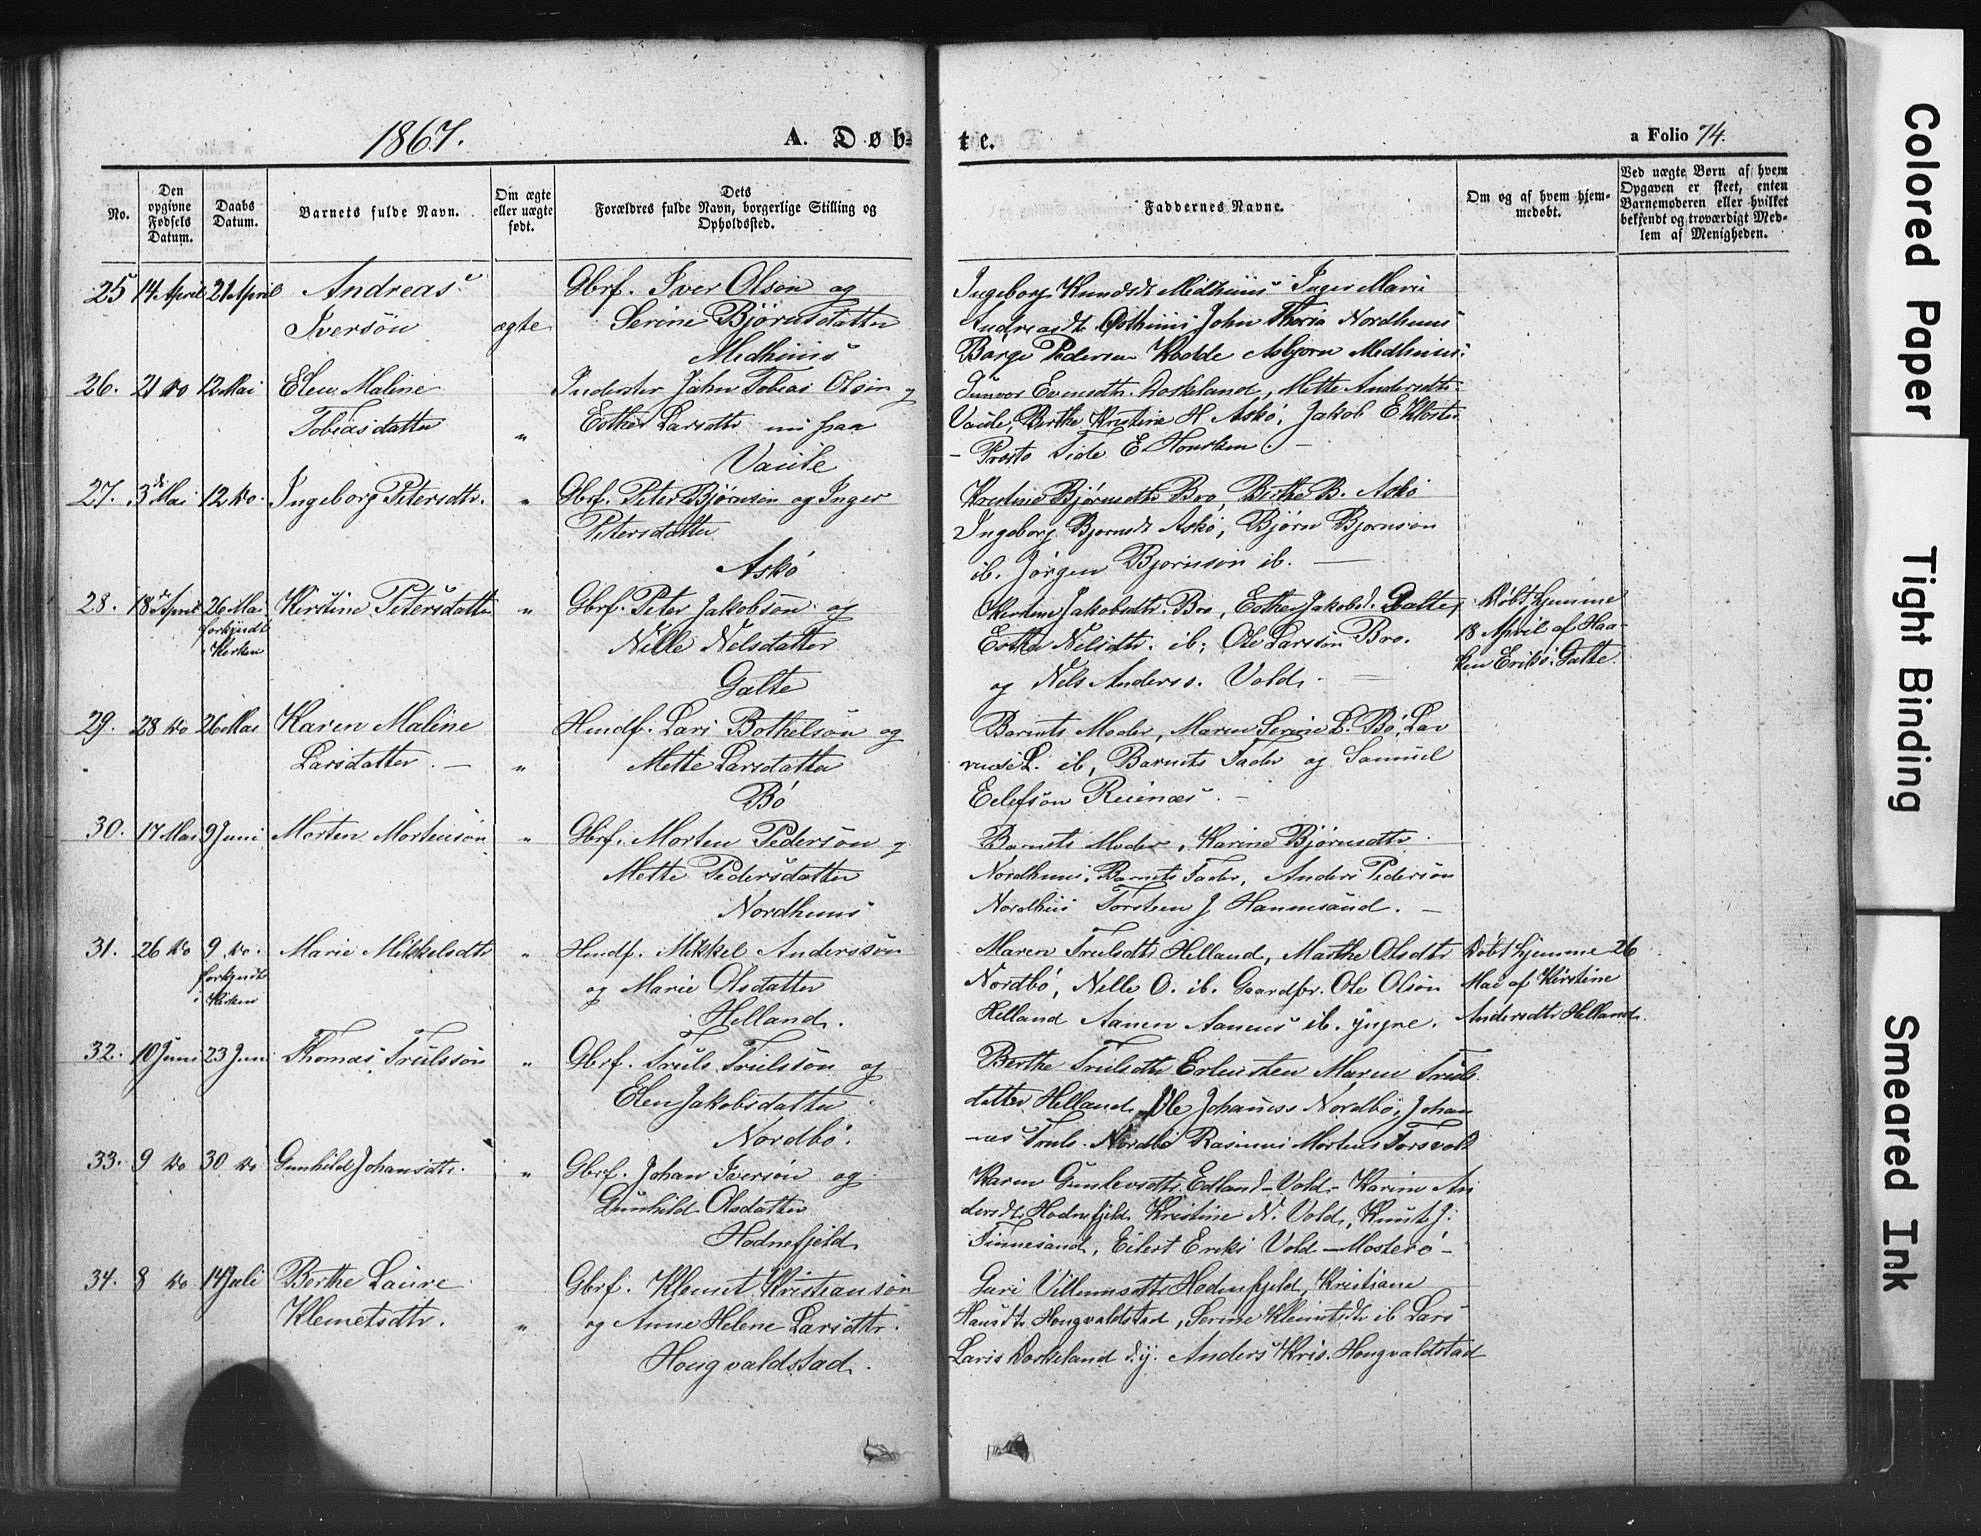 1867.
A. Døb=
te.
a Folio 74.
No.
Den opgivne Fødsels Datum.
Daabs Datum.
Barnets fulde Navn.
Om ægte eller uægte født.
Dets Forældres fulde Navn, borgerlige Stilling og Opholdssted.
Faddernes Navne.
Om og af hvem hjemmedøbt.
Ved uægte Børn af hvem Opgaven er skeet, enten Barnemoderen eller hvilket bekjendt og troværdigt Medlem af Menigheden.
25 14 April 21 April Andreas Gbrf. Iver Olsøn og
Iversøn ægte Serine Bjørnsdatter
Medhuus
Ingeborg Knudsdt Medhuus Inger Marie
John Nordhuus
Børge Pedersen Asbjørn Medhuus
26. 21 do 12 Mai Elen Maline Inderster John Tobias Olsen og
Tobiasdatter " Esther Larsdtr
Mette Andersdtr.
Berthe Kristine H Askö, Jakob E Kloster
27. 3 Mai 12 do. Ingeborg Petersdtr. " Gbrf. Peter Bjørnsøn og Inger
Petersdatter
Askö
Bro, Birthe B. Askö
Ingeborg Bjornsdt Askö, Bjørn Bjornsøn
ib. Jørgen Bjornsøn ib.
28. 18 April 26 Mai Kirstine Petersdatter " Gbrf. Peter Jakobsøn og
forkyndt i Kirken
Nille Nelsdatter
Galte
Jakobsdtr. Bro, Esther Jakobsd. Galte,
Esther Nelsdtr. ib; Ole Larsøn Bro.
og Nels Anders. Vold.
Døbt hjemme
18 April af Haa-
ken Eriks. Galte.
29. 28 do 26 Mai Karen Maline Huusf. Lars Bothelsøn og
Larsdatter. " Mette Larsdatter
Bö
Barnets Moder, Maren Serine L. Bö, Lav
L. ib, Barnets Fader og Samuel
Eelefsøn Reienæs.
30. 17 Mai 9 Juni Morten Mortensøn " Gbrf. Morten Pedersøn og
Mette Pedersdatter
Nordhuus
Barnets Moder, Karine Bjørnsdtr
Nordhuus, Barnets Fader, Anders Pedersøn
Nordhus Torsten J Hanmesund.
31. 26 do 9 do. Marie Mikkelsdtr " Huusf. Mikkel Anderssøn
forkyndt i Kirken
og Marie Olsdatter
Helland.
Maren Trulsdtr Helland, Marthe Olsdtr
Nordbö, Nelle O. ib. Gaardbr. Ole Olsön
Helland ib.
Døbt hjemme 26
Mai af Kirstine
Andersdtr Helland.
32. 10 Juni 23 Juni Thomas Trulssön " Gbrf. Truls Trulssön og
Elen Jakobsdatter
Nordbö.
Berthe Trulsdtr Maren Truls
datter Helland, Ole Johaness Nordbö, Johan
nes Truls. Nordbö Rasmus Mortens Torsvold
33. 9 do 30 do Gunhild Johansdtr. " Gbrf. Johan Iversön og
Gunhild Olsdatter
Hodnefjeld
Karen Gunlevsdtr Edland Vold Karine An
dersdtr Hodnefjeld Kristine N. Vold, Knut J.
Finnesand, Eilert Eriks Vold - Mosterö -
34. 8 do 14 Juli Berthe Laure Gbrf. Klemet Kristiansön
Klemetsdtr. " og Anne Helene Larsdtr.
Hougvaldstad.
Guri Villumsdtr Hodnefjeld, Kristiane
Hansdtr Hougvaldstad, Serine Klemetsdtr ib Lars
Laris Dørkeland d.y. Anders Kris. Hougvaldstad
Colored Paper
Tight Binding
Smeared Ink